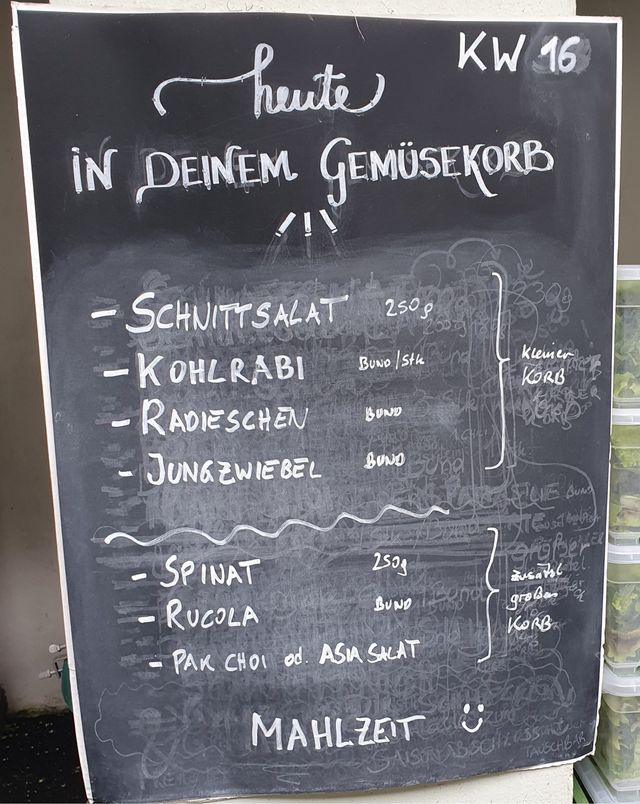 KW 16
heute
IN DEINEM GEMÜSEKORB
- SCHNITTSALAT 250g
- KOHLRABI BUND/Stk
- RADIESCHEN BUND
- JUNGZWIEBEL BUND
kleiner
KORB
- SPINAT 250g
- RUCOLA BUND
- PAK CHOI od. ASIA SALAT
zusätzl
großer
KORB
MAHLZEIT